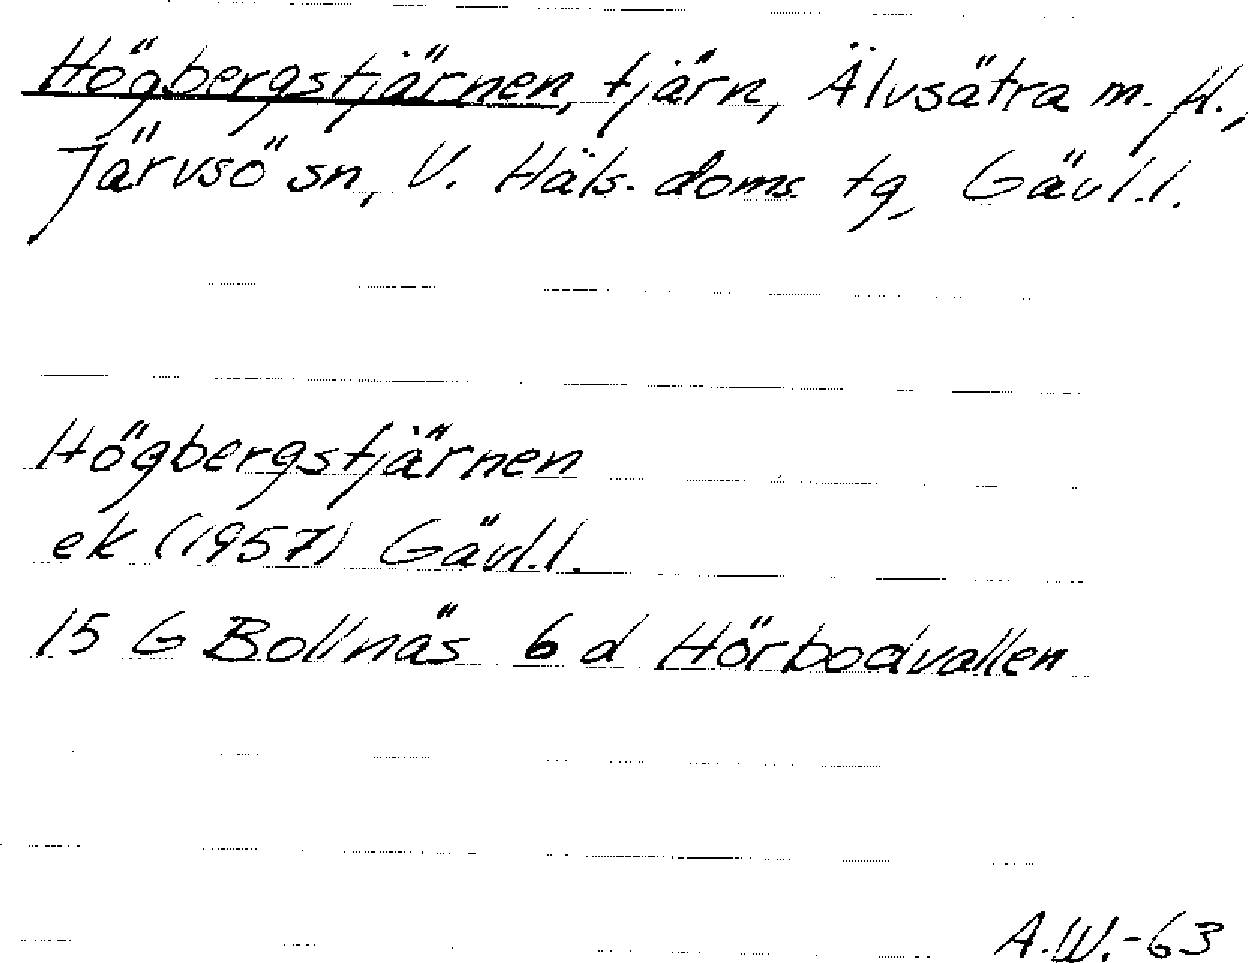 Högbergstjärnen, tjärn, Älvsätra m. fl.,
Järvsö sn, V. Häls. doms. tg, Gävl.l.
Högbergstjärnen
ek (1957) Gävl.l.
15 G Bollnäs 6 d Hörbodvallen
A.W.-63